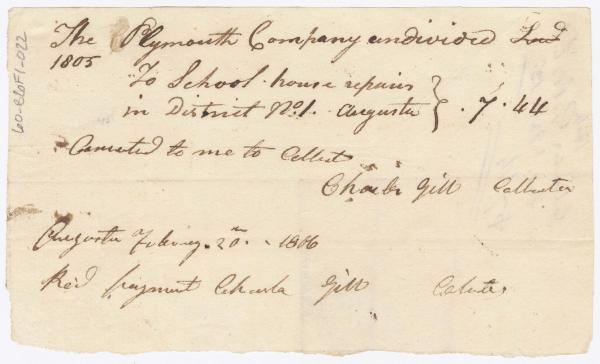 The Plymouth Company undivided Land
1805
To School house repairs
in District No. 1. Augusta } . 7 . 44
Committed to me to Collect
Charles Gill Collector
Augusta February. 20th. 1806
Rec'd payment Charles Gill Collector
60-86F1-022